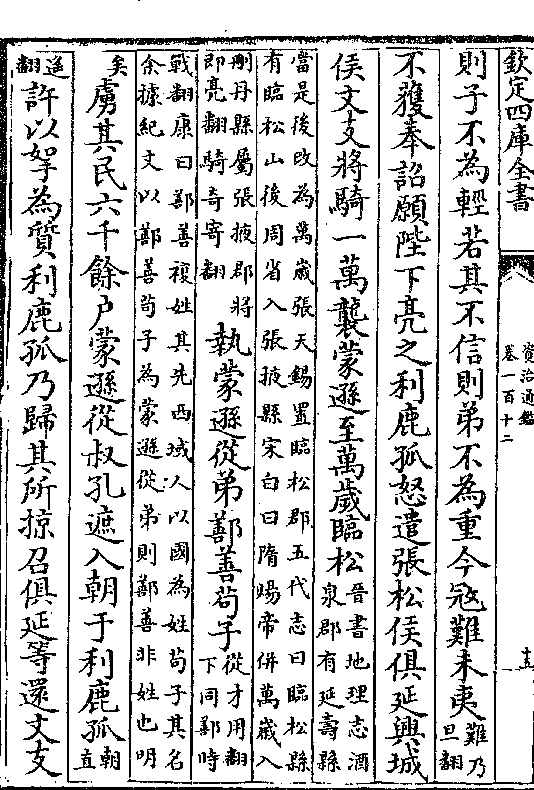 欽定四庫全書
資治通鑑
卷一百十二
十五
則子不為輕若其不信則弟不為重今寇難未夷難乃旦翻
不獲奉詔願陛下亮之利鹿孤怒遣張松侯俱延興城
侯文支將騎一萬襲蒙遜至萬歲臨松晉書地理志酒泉郡有延壽縣
當是後改為萬歲張天錫置臨松郡五代志曰臨松縣
有臨松山後周省入張掖縣宋白曰隋煬帝併萬歲入
刪丹縣屬張掖郡將
即亮翻騎奇寄翻
執蒙遜從弟鄯善茍子從才用翻下同鄯時
戰翻康曰鄯善複姓其先西域人以國為姓茍子其名
余據紀文以鄯善茍子為蒙遜從弟則鄯善非姓也明
矣
虜其民六千餘户蒙遜從叔孔遮入朝于利鹿孤朝直
遥翻
許以挐為質利鹿孤乃歸其所掠召俱延等還文支